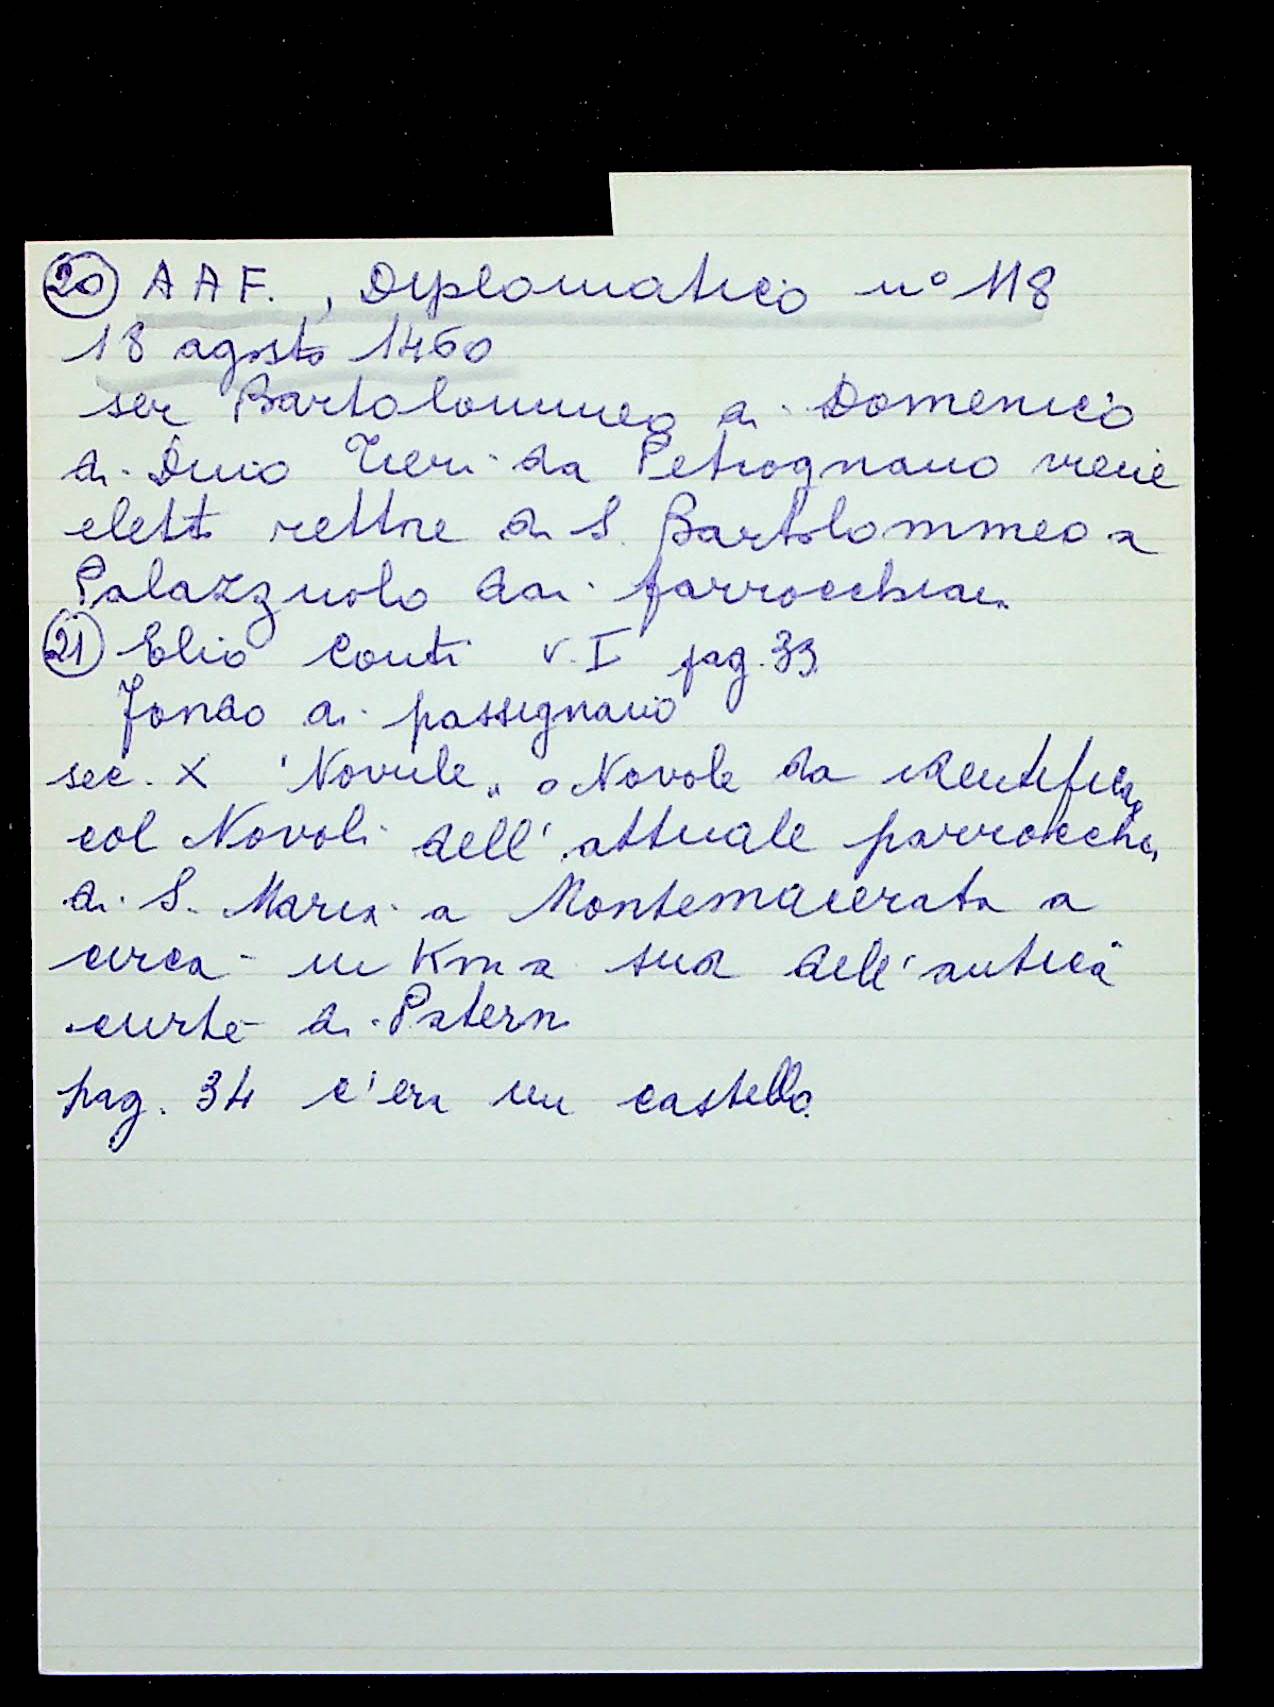 20 A A F. , Diplomatico n° 118
18 agosto 1460
ser Bartolommeo di Domenico
di Dino da Petrognano viene
eletto rettore di S. Bartolommeo a
Palazzuolo dai parrocchiani
21 Elio Conti v. I pag. 33
Fondo di passignano
sec. X "Novule" o Novole da identificare
col Novoli dell'attuale parrocchia
di S. Maria a Montemacerata a
circa un Km a sud dell'antica
curte di Paterno
pag. 34 c'era un castello.